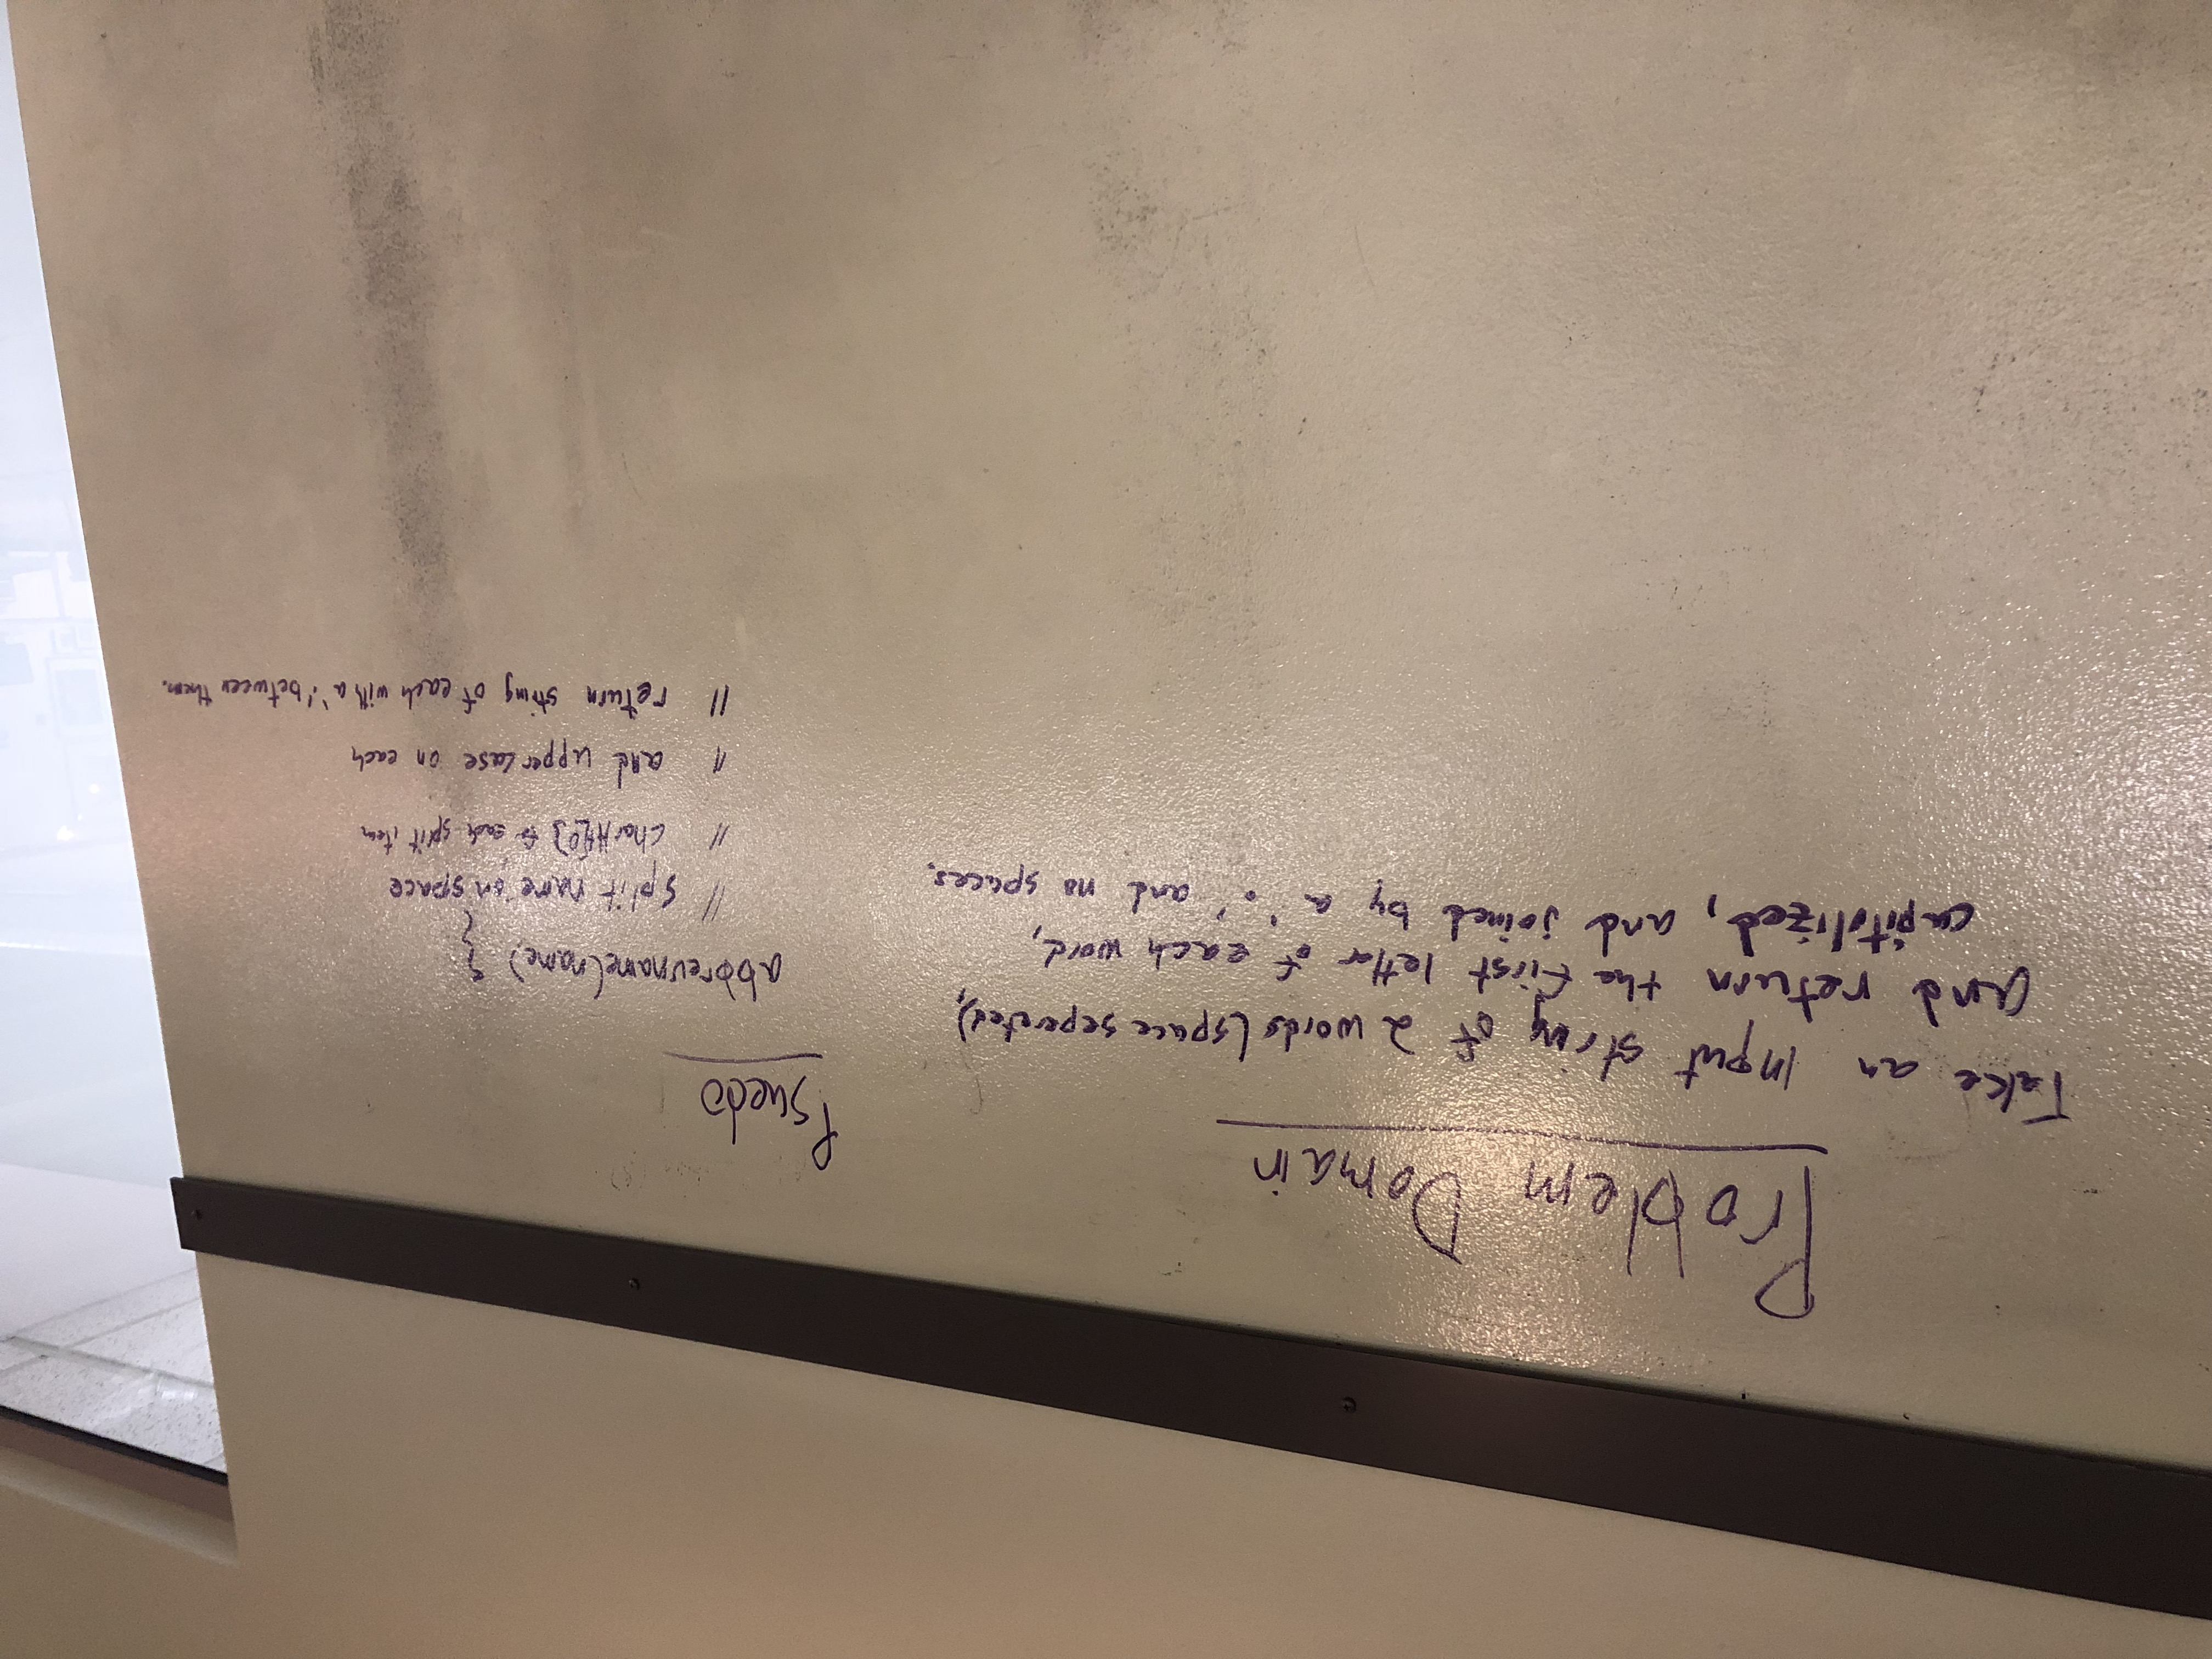 Problem Domain
Take an input string of 2 words (space seperated),
and return the first letter of each word,
capitolized, and joined by a '.' and no spaces.
Psuedo
abbrevname(name) {
}
// split name on space
// charAt[0] for each split item
// and upper case on each
// return string of each with a '.' between them.